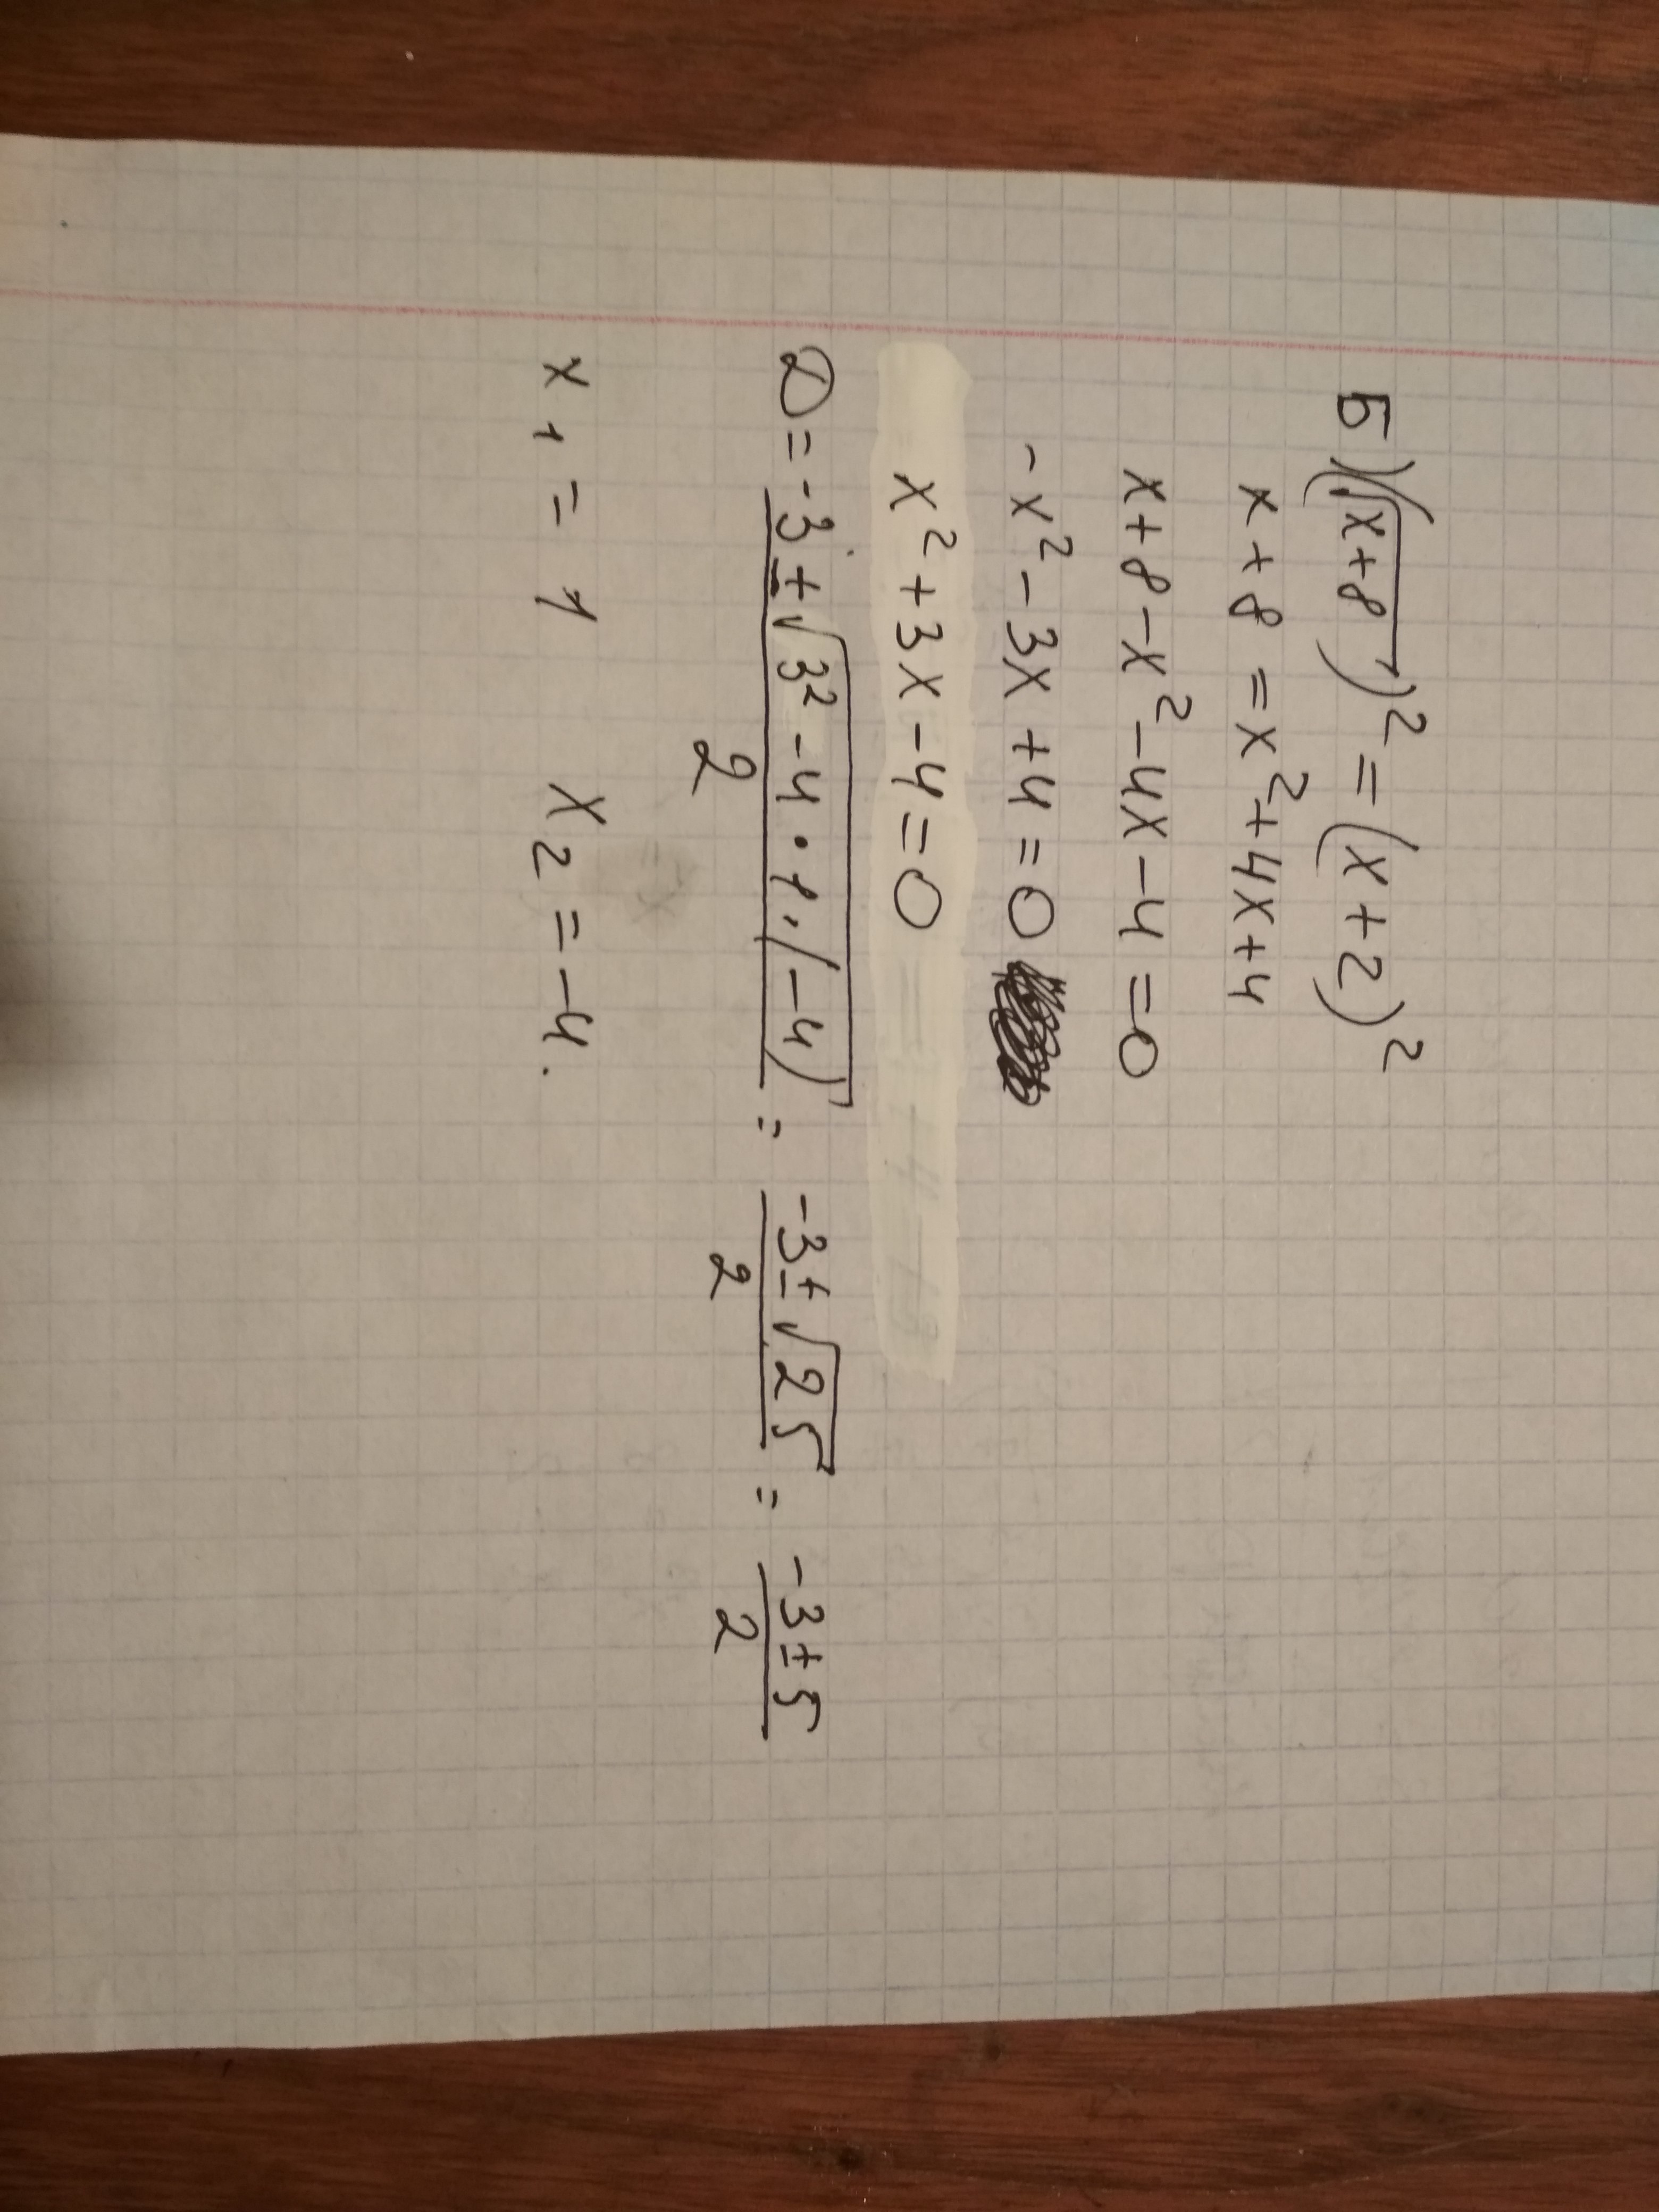 Б) (√(x+8))² = (x+2)²
x+8 = x²+4x+4
x+8-x²-4x-4=0
-x²-3x+4=0
x²+3x-4=0
D = (-3±√(3²-4·1·(-4)))/2 = (-3±√25)/2 = (-3±5)/2
x₁ = 1 x₂ = -4.